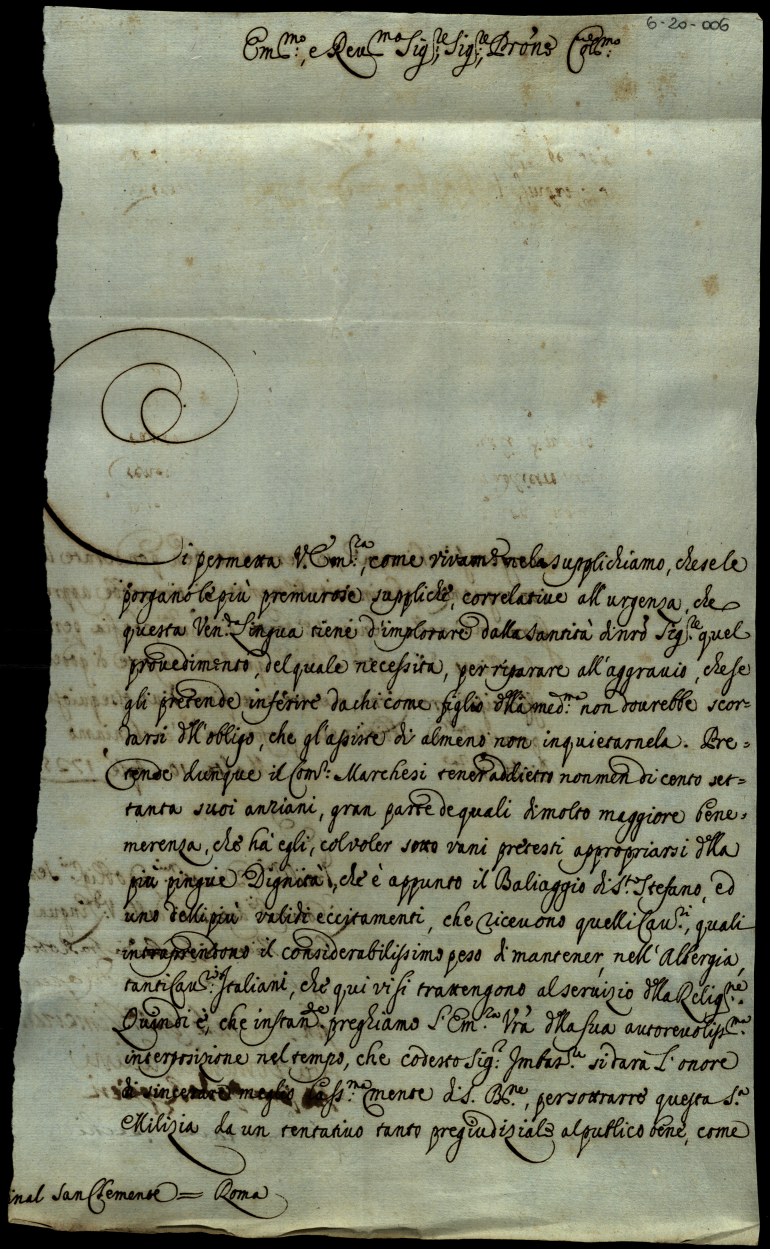 6-20-006
Em.mo, e Reu.mo Sig.re Sig.re Prōne Coll.mo
Ci permetta V. Em.za, come vivam.te nela supplichiamo, che se le
porgano le più premurose suppliche, correlative all'urgenza, che
questa Ven.da Lingua tiene d'implorare dalla Santità di nrō Sig.re quel
provedimento, del quale necessita, per riparare all'aggravio, che se
gli pretende inferire da chi come figlio dlla med.ma non dovrebbe scor-
darsi dll'obligo, che gl'assiste di almeno non inquietarnela. Pre-
tende dunque il Com.r Marchesi tener addietro non men di cento set-
tanta suoi anziani, gran parte de quali di molto maggiore bene-
merenza, che hà egli, col voler sotto vani pretesti appropriarsi dlla
più pingue Dignità, che è appunto il Baliaggio di S.to Stefano, ed
uno delli più validi eccitamenti, che ricevono quelli Cau.ri, quali
intraprendono il considerabilissimo peso di mantener nell'Albergia
tanti Cau.ri Italiani, che qui vi si trattengono al seruizio dlla Relig.ne.
Quindi è, che instan.te preghiamo l'Em.za Vrā dlla sua autorevoliss.ma
interposizione nel tempo, che codesto Sig.r Imbas.re si darà l'onore
di meglio mente di S. B.ne, per sottrarre questa S.a
Milizia da un tentativo tanto pregiudiziale al publico bene, come
inal San Clemente = Roma